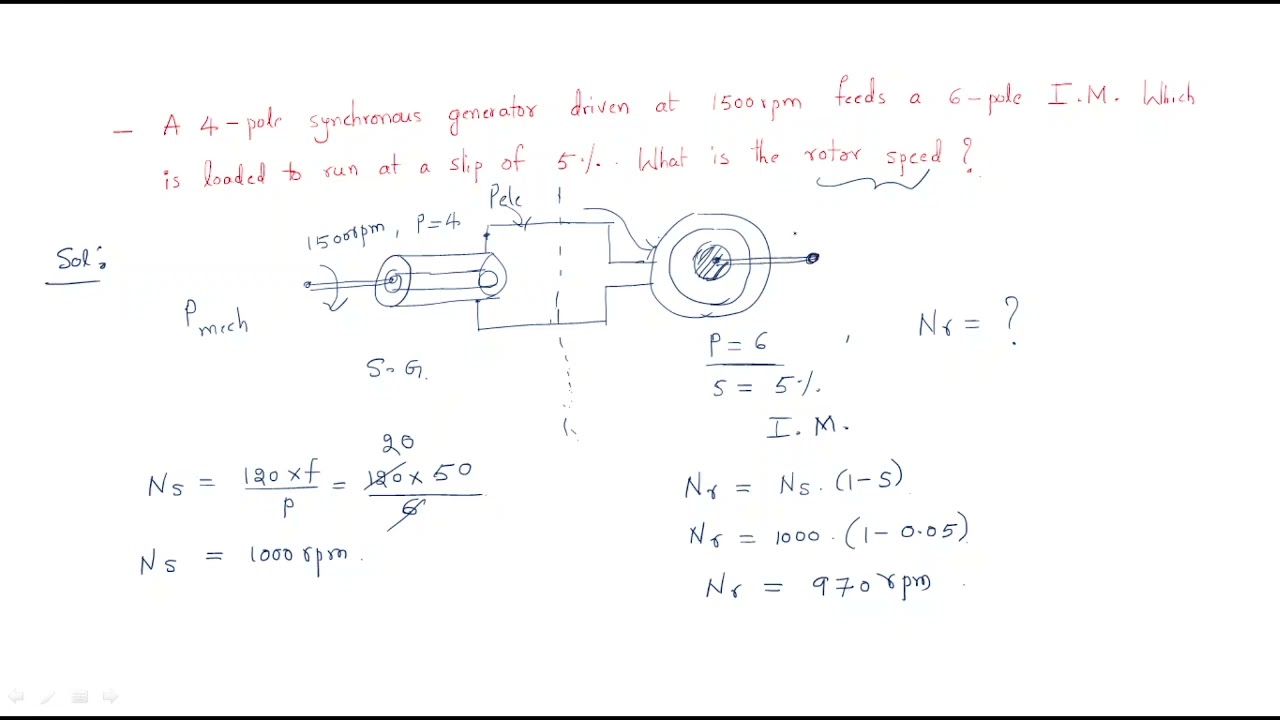 — A 4-pole synchronous generator driven at 1500rpm feeds a 6-pole I.M. Which
is loaded to run at a slip of 5%. What is the rotor speed?
Sol:
1500rpm, P=4
Pele
Pmech
S-G.
P = 6 , Nr = ?
S = 5%.
I.M.
Ns = 120×f/P = 120×50/6
20
Ns = 1000rpm.
Nr = Ns.(1-S)
Nr = 1000.(1-0.05)
Nr = 970rpm.